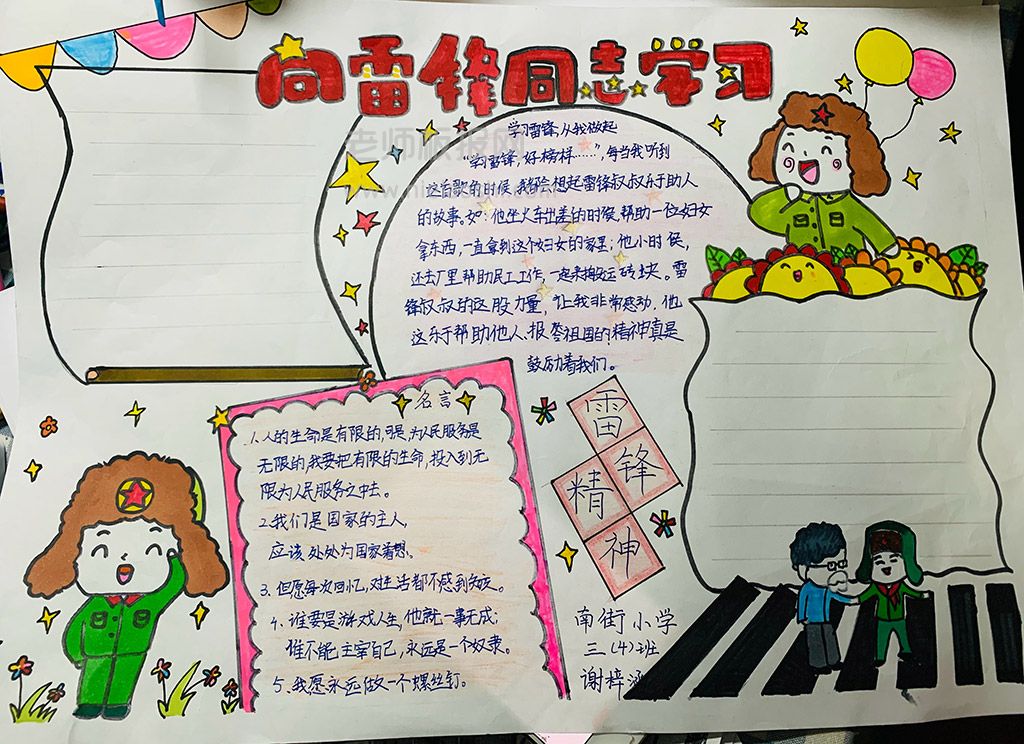 向雷锋同志学习
老师板报网
学习雷锋,从我做起
"学习雷锋,好榜样……",每当我听到
这首歌的时候,我都会想起雷锋叔叔乐于助人
的故事。如:他坐火车出差的时候,帮助一位妇女
拿东西,一直拿到这个妇女的家里;他小时候,
还去厂里帮助民工工作,一起来搬运砖块。雷
锋叔叔的这股力量,让我非常感动,他
这乐于帮助他人、报答祖国的精神真是
鼓励着我们。
名言
1.人的生命是有限的,可是,为人民服务是
无限的,我要把有限的生命,投入到无
限为人民服务之中去。
2.我们是国家的主人,
应该处处为国家着想。
3.但愿每次回忆,对生活都不感到负疚。
4.谁要是游戏人生,他就一事无成;
谁不能主宰自己,永远是一个奴隶。
5、我愿永远做一个螺丝钉。
雷锋
精神
南街小学
三(4)班
谢梓涵